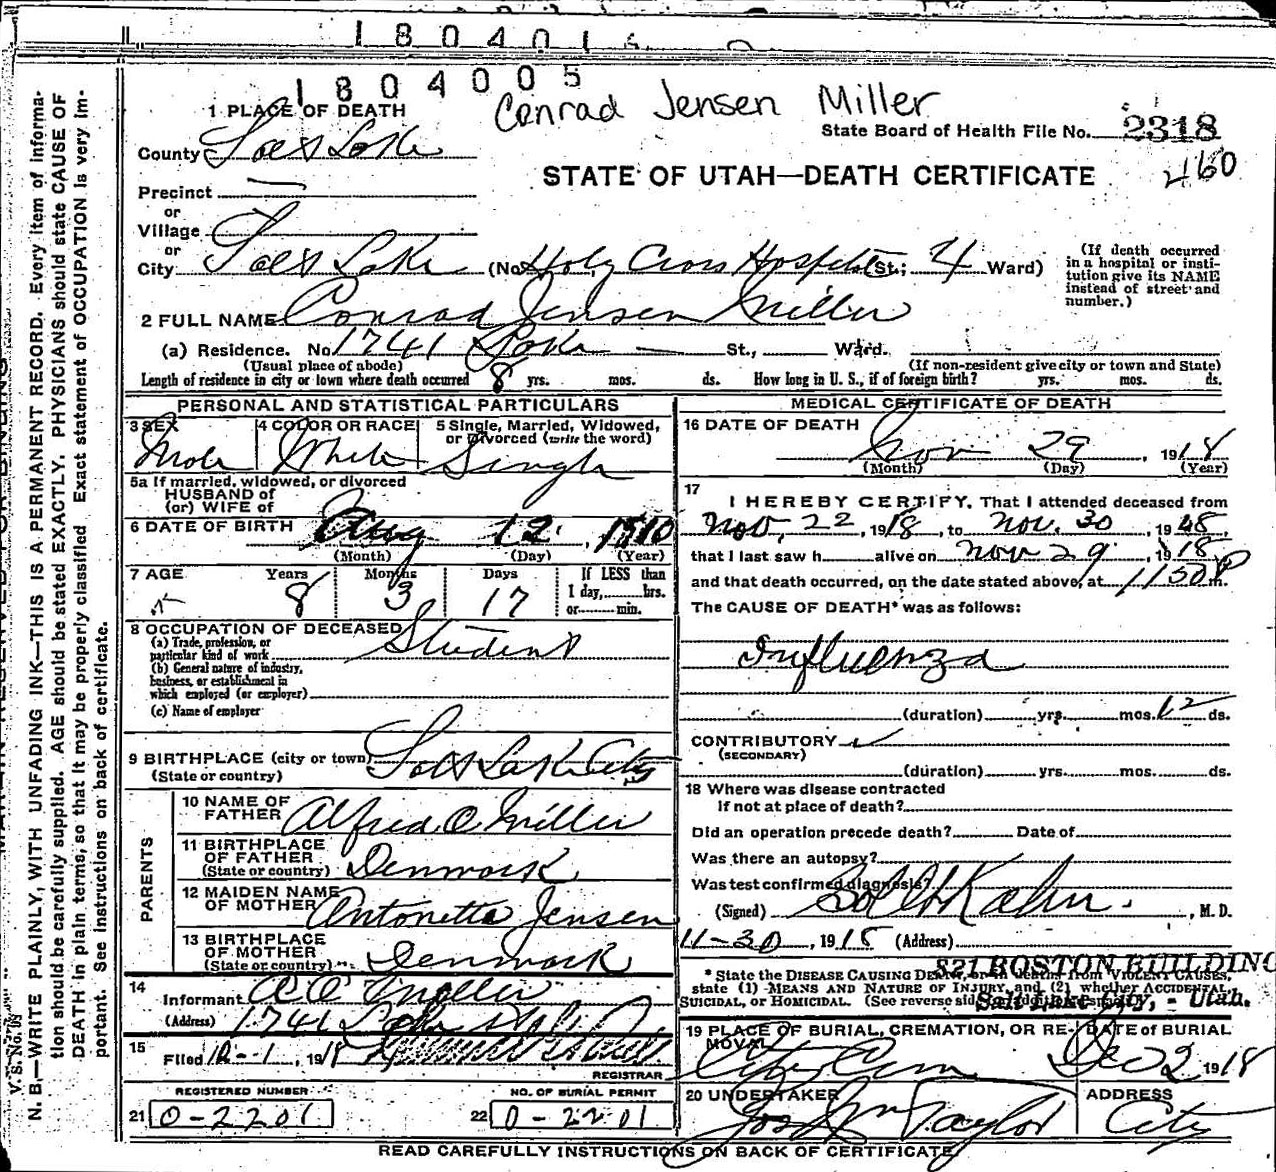 1804005
Conrad Jensen Miller
State Board of Health File No. 2318
460
STATE OF UTAH—DEATH CERTIFICATE
1 PLACE OF DEATH
County Salt Lake
Precinct
or
Village
or
City Salt Lake (No. Holy Cross Hospital St.; 4 Ward)
(If death occurred
in a hospital or insti-
tution give its NAME
instead of street and
number.)
2 FULL NAME Conrad Jensen Miller
(a) Residence. No. 1741 Lake St., Ward.
(Usual place of abode) (If non-resident give city or town and State)
Length of residence in city or town where death occurred 8 yrs. mos. ds. How long in U. S., if of foreign birth? yrs. mos. ds.
PERSONAL AND STATISTICAL PARTICULARS
3 SEX 4 COLOR OR RACE 5 Single, Married, Widowed,
or Divorced (write the word)
Male White Single
5a If married, widowed, or divorced
HUSBAND of
(or) WIFE of
6 DATE OF BIRTH Aug 12, 1910
(Month) (Day) (Year)
7 AGE Years Months Days If LESS than
1 day, hrs.
or min.
8 3 17
8 OCCUPATION OF DECEASED
(a) Trade, profession, or
particular kind of work Student
(b) General nature of industry,
business, or establishment in
which employed (or employer)
(c) Name of employer
9 BIRTHPLACE (city or town) Salt Lake City
(State or country)
PARENTS
10 NAME OF
FATHER Alfred O Miller
11 BIRTHPLACE
OF FATHER
(State or country) Denmark
12 MAIDEN NAME
OF MOTHER Antonette Jensen
13 BIRTHPLACE
OF MOTHER
(State or country) Denmark
14
Informant A O Miller
(Address) 1741 Lake
15
Filed 12-1, 1918
REGISTRAR
REGISTERED NUMBER NO. OF BURIAL PERMIT
21 0-2201 22 0-2201
MEDICAL CERTIFICATE OF DEATH
16 DATE OF DEATH
Nov 29, 1918
(Month) (Day) (Year)
17
I HEREBY CERTIFY, That I attended deceased from
Nov. 22, 1918, to Nov. 30, 1918,
that I last saw h alive on Nov 29, 1918,
and that death occurred, on the date stated above, at 1150 P m.
The CAUSE OF DEATH* was as follows:
Influenza
(duration) yrs. mos. 12 ds.
CONTRIBUTORY
(SECONDARY)
(duration) yrs. mos. ds.
18 Where was disease contracted
If not at place of death?
Did an operation precede death? Date of
Was there an autopsy?
Was test confirmed diagnosis?
(Signed) Sol G Kahn, M. D.
11-30, 1918 (Address)
521 BOSTON BUILDING
Salt Lake City, - Utah.
* State the DISEASE CAUSING DEATH, or in deaths from VIOLENT CAUSES,
state (1) MEANS AND NATURE OF INJURY, and (2) whether ACCIDENTAL,
SUICIDAL, OR HOMICIDAL. (See reverse side for additional space.)
19 PLACE OF BURIAL, CREMATION, OR RE- DATE of BURIAL
MOVAL
City Cem Dec 2 1918
20 UNDERTAKER ADDRESS
Jos Wm Taylor City
READ CAREFULLY INSTRUCTIONS ON BACK OF CERTIFICATE
N. B.—WRITE PLAINLY, WITH UNFADING INK—THIS IS A PERMANENT RECORD. Every item of informa-
tion should be carefully supplied. AGE should be stated EXACTLY. PHYSICIANS should state CAUSE OF
DEATH in plain terms, so that it may be properly classified. Exact statement of OCCUPATION is very im-
portant. See instructions on back of certificate.